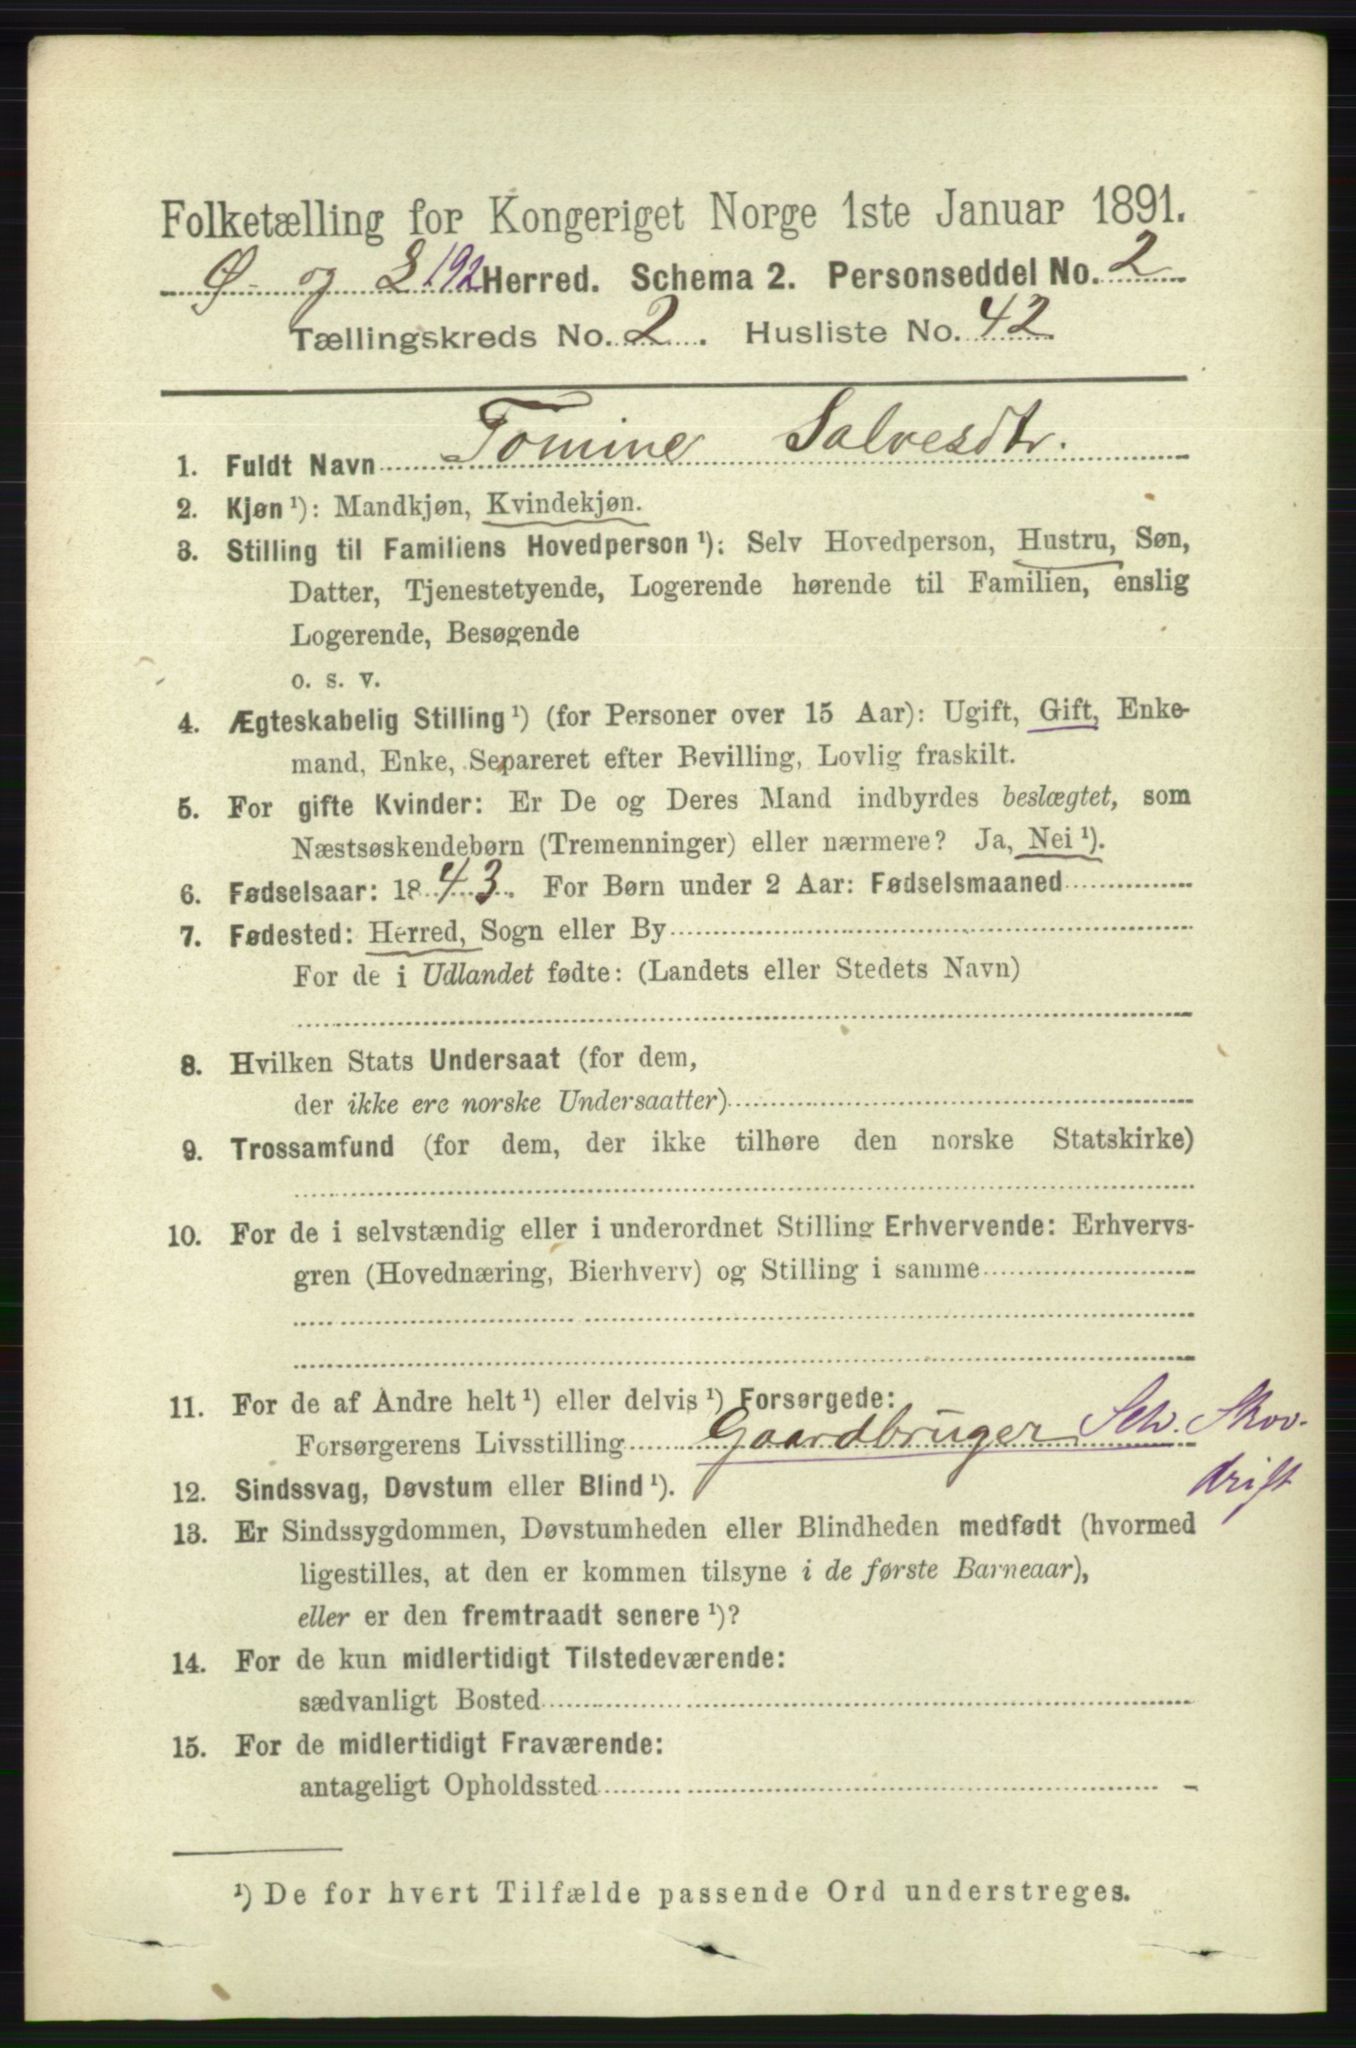 Folketælling for Kongeriget Norge 1ste Januar 1891.
Ø. og L 192 Herred. Schema 2. Personseddel No. 2
Tællingskreds No. 2. Husliste No. 42
1. Fuldt Navn Tomine Salvesdtr.
2. Kjøn ¹): Mandkjøn, Kvindekjøn.
3. Stilling til Familiens Hovedperson ¹): Selv Hovedperson, Hustru, Søn,
Datter, Tjenestetyende, Logerende hørende til Familien, enslig
Logerende, Besøgende
o. s. v.
4. Ægteskabelig Stilling ¹) (for Personer over 15 Aar): Ugift, Gift, Enke-
mand, Enke, Separeret efter Bevilling, Lovlig fraskilt.
5. For gifte Kvinder: Er De og Deres Mand indbyrdes beslægtet, som
Næstsøskendebørn (Tremenninger) eller nærmere? Ja, Nei ¹).
6. Fødselsaar: 1843. For Børn under 2 Aar: Fødselsmaaned
7. Fødested: Herred, Sogn eller By
For de i Udlandet fødte: (Landets eller Stedets Navn)
8. Hvilken Stats Undersaat (for dem,
der ikke ere norske Undersaatter)
9. Trossamfund (for dem, der ikke tilhøre den norske Statskirke)
10. For de i selvstændig eller i underordnet Stilling Erhvervende: Erhvervs-
gren (Hovednæring, Bierhverv) og Stilling i samme
11. For de af Andre helt ¹) eller delvis ¹) Forsørgede:
Forsørgerens Livsstilling Gaardbruger Selv. Skov-
drift
12. Sindssvag, Døvstum eller Blind ¹).
13. Er Sindssygdommen, Døvstumheden eller Blindheden medfødt (hvormed
ligestilles, at den er kommen tilsyne i de første Barneaar),
eller er den fremtraadt senere ¹)?
14. For de kun midlertidigt Tilstedeværende:
sædvanligt Bosted
15. For de midlertidigt Fraværende:
antageligt Opholdssted
¹) De for hvert Tilfælde passende Ord understreges.